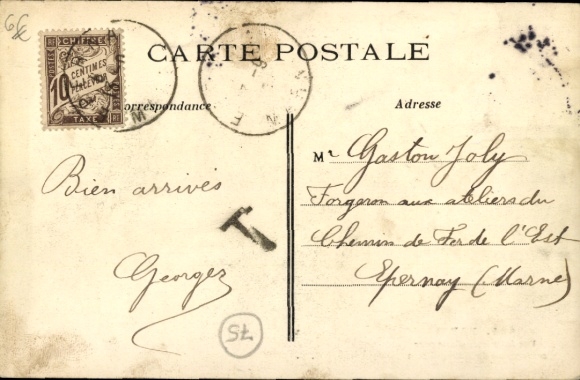 CARTE POSTALE
CHIFFRE
10
CENTIMES
À PERCEVOIR
TAXE
Correspondance
Adresse
Bien arrivés
Georges
T
Mr Gaston Joly
Forgeron aux ateliers du
Chemin de Fer de l'Est
Epernay (Marne)
75